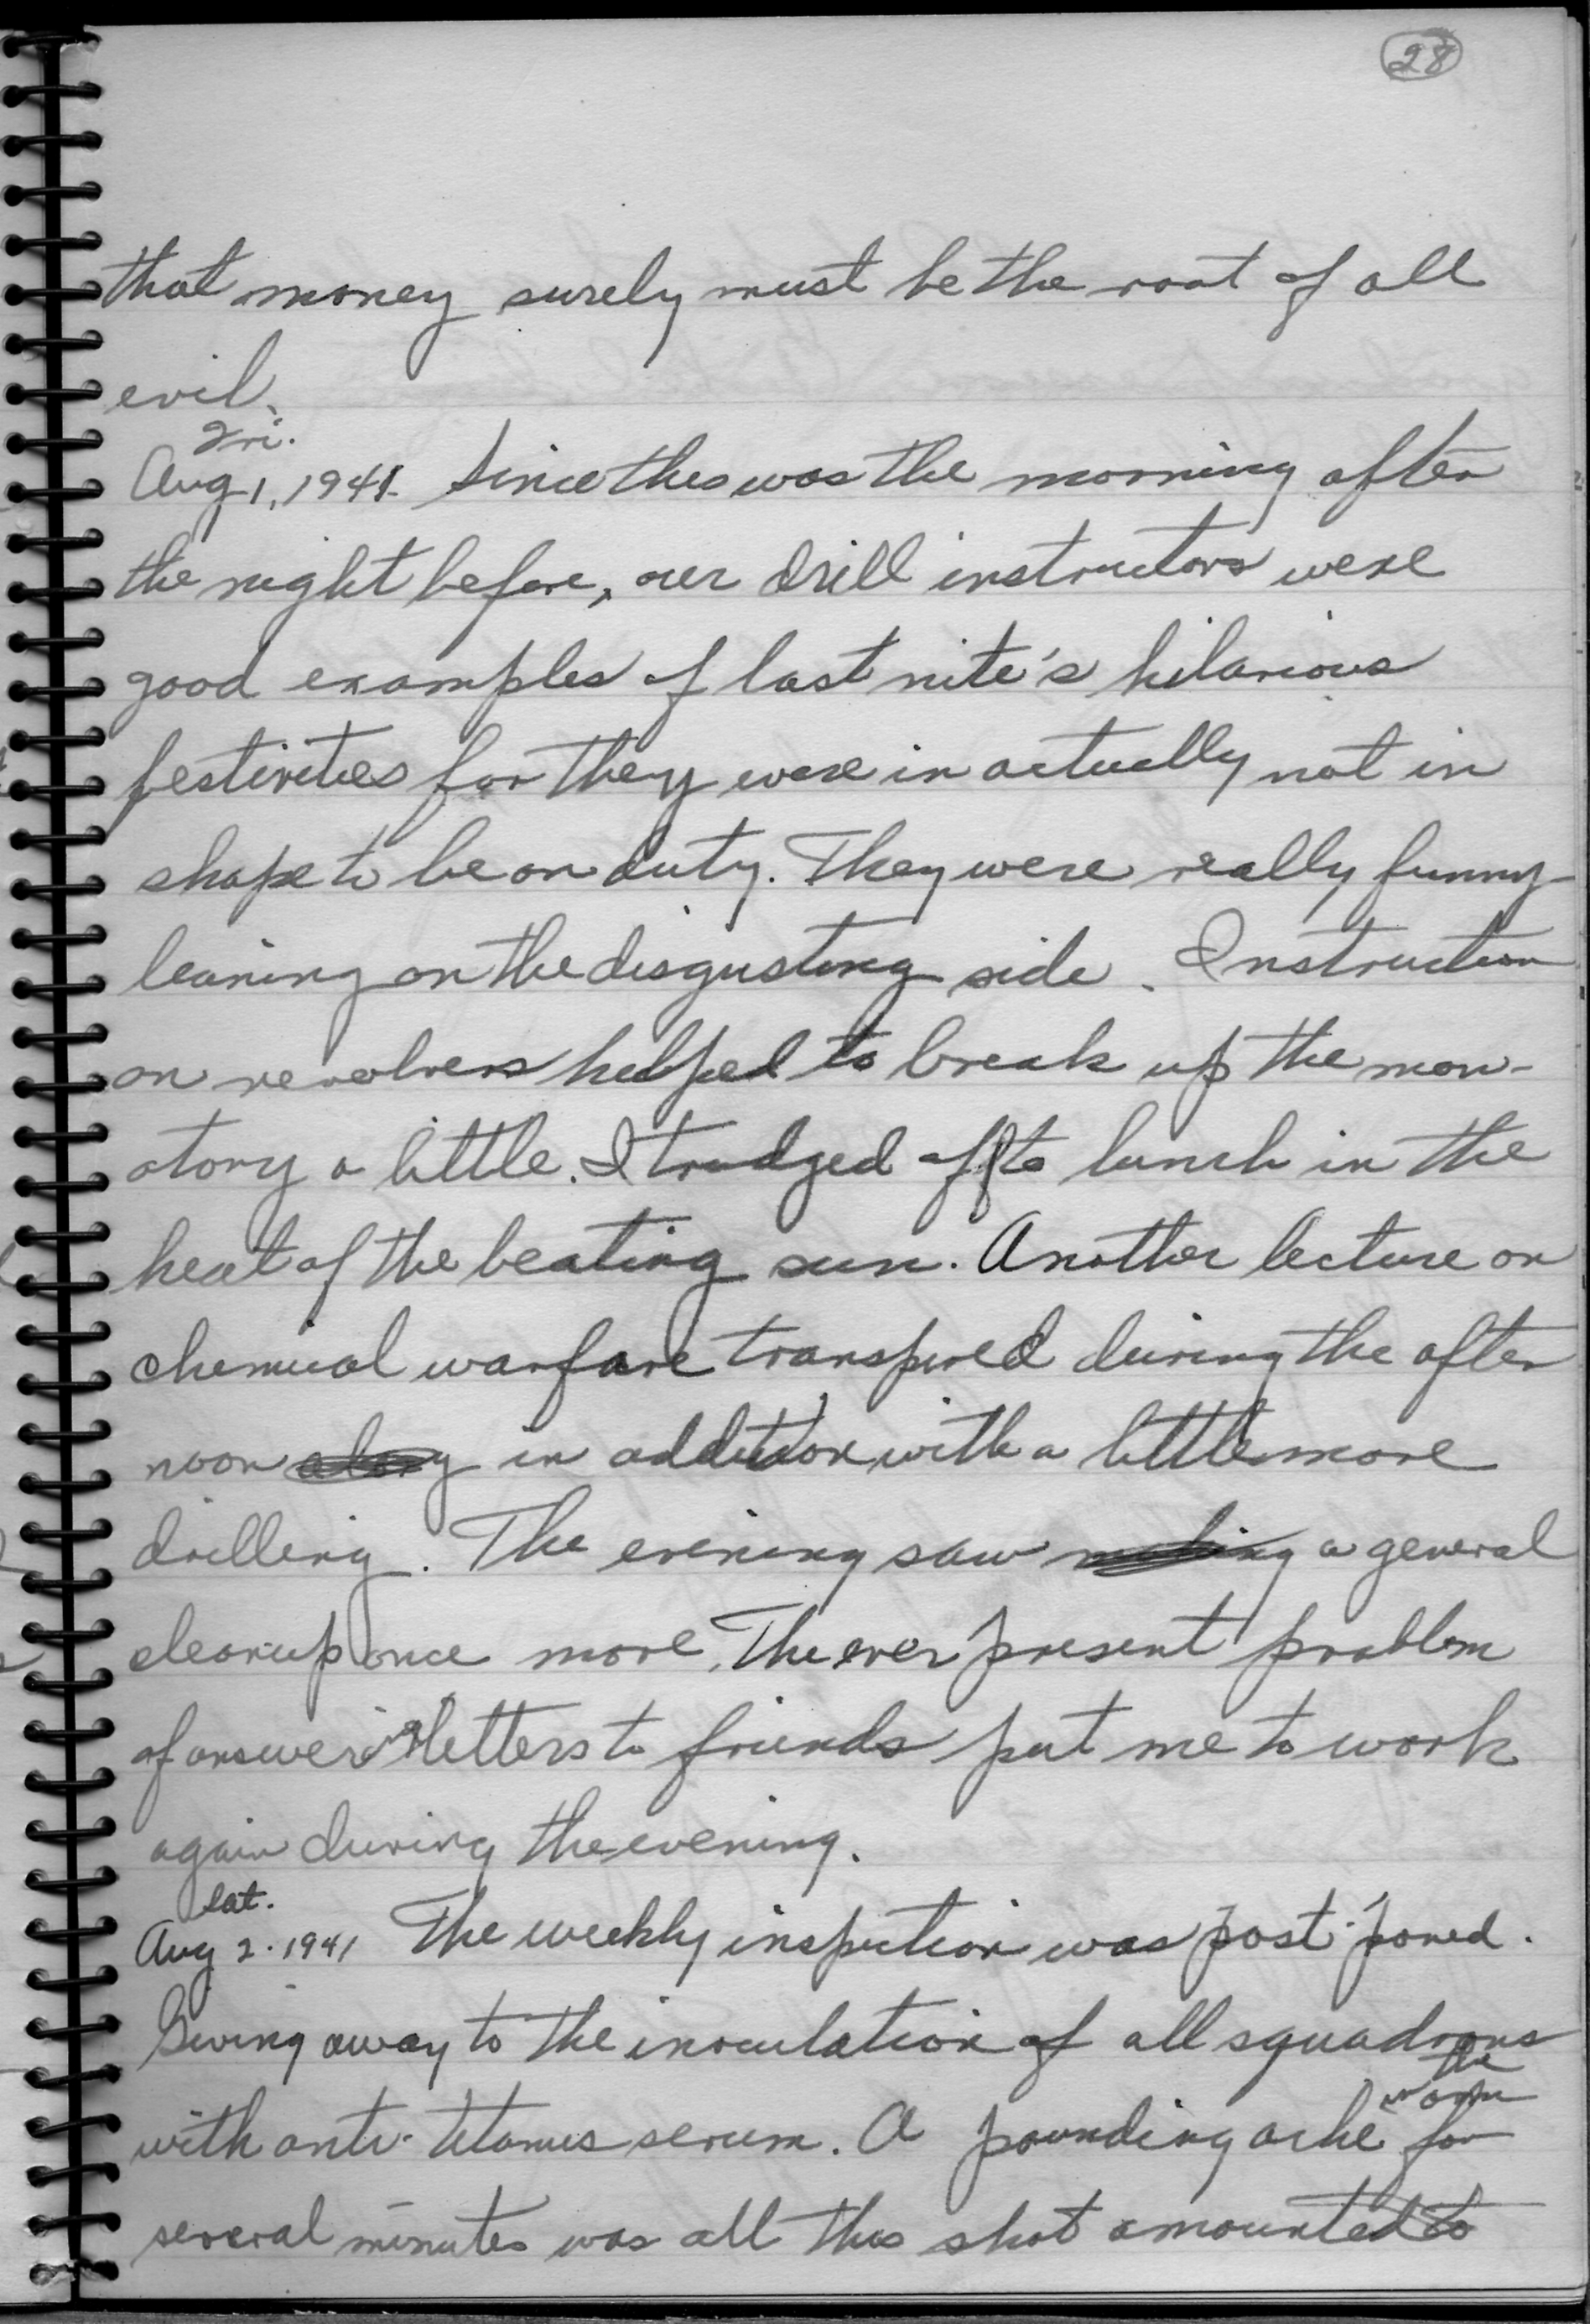 28
that money surely must be the root of all
evil.
Fri.
Aug 1, 1941. Since this was the morning after
the night before, our drill instructors were
good examples of last nite's hilarious
festivities for they were in actually not in
shape to be on duty. They were really funny -
leaning on the disgusting side. Instruction
on revolvers helped to break up the mon-
otony a little. I trudged off to lunch in the
heat of the beating sun. Another lecture on
chemical warfare transpired during the after
noon along in addition with a little more
drilling. The evening saw making a general
cleanup once more. The ever present problem
of answering letters to friends put me to work
again during the evening.
Sat.
Aug 2. 1941 The weekly inspection was post-poned.
Giving away to the inoculation of all squadrons
with anti-tetanus serum. A pounding ache in the arm for
several minutes was all this shot amounted to